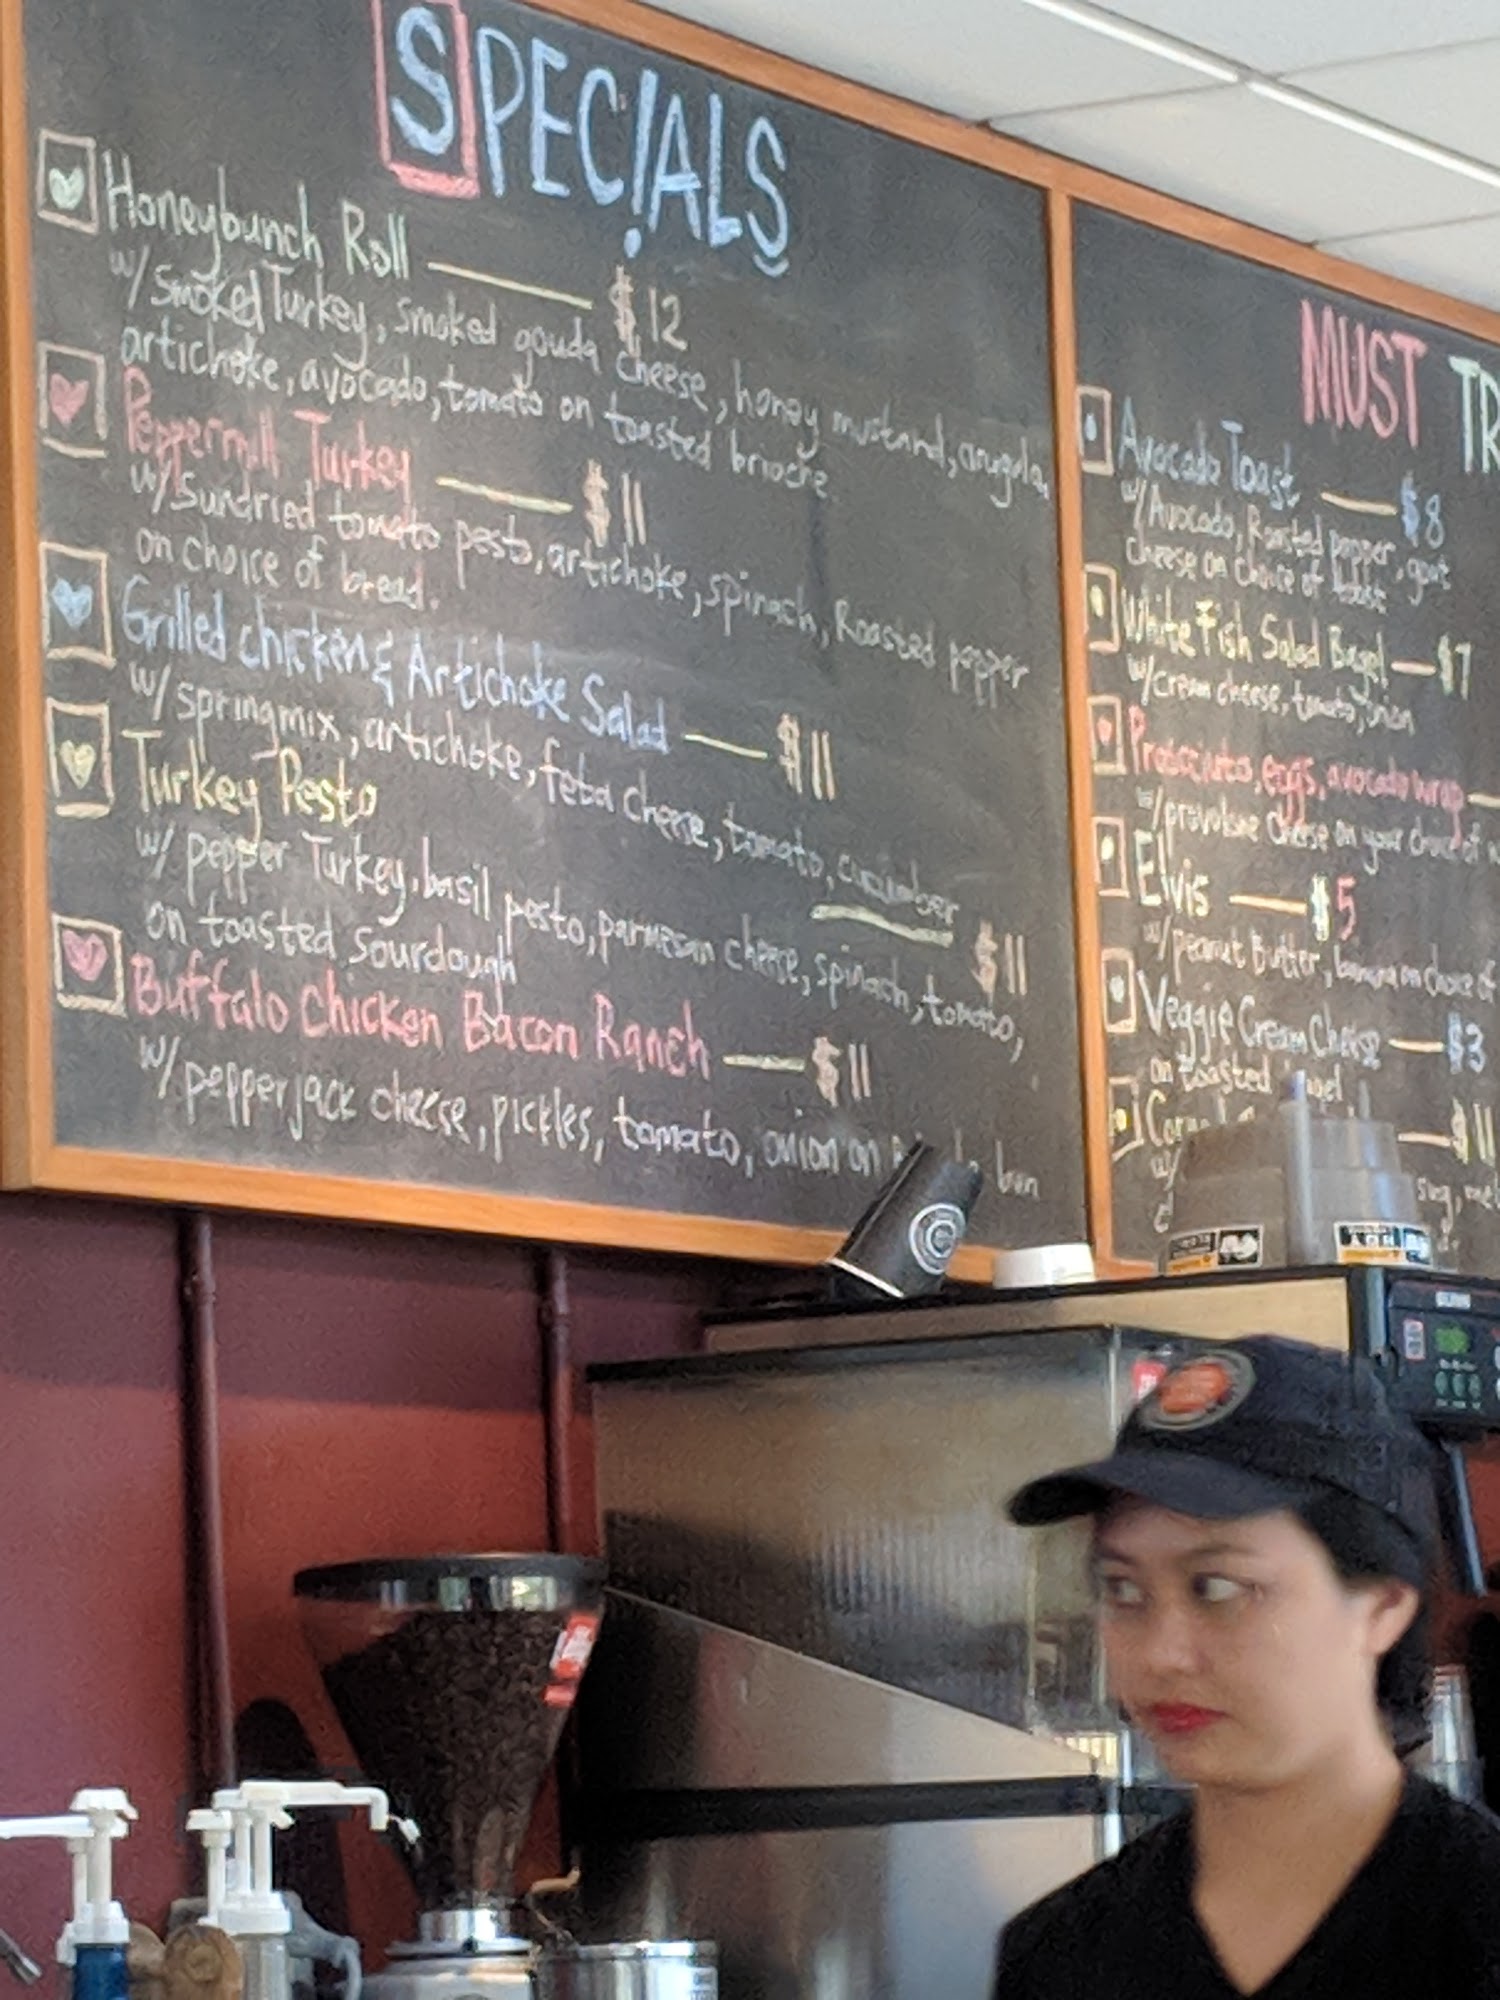 SPECIALS
Honeybunch Roll — $12
w/ smoked Turkey, smoked gouda cheese, honey mustard, arugula,
artichoke, avocado, tomato on toasted brioche
Peppermill Turkey — $11
w/ Sundried tomato pesto, artichoke, spinach, Roasted pepper
on choice of bread.
Grilled chicken & Artichoke Salad — $11
w/ springmix, artichoke, feta cheese, tomato, cucumber
Turkey Pesto — $11
w/ pepper Turkey, basil pesto, parmesan cheese, spinach, tomato,
on toasted Sourdough
Buffalo Chicken Bacon Ranch — $11
w/ pepperjack cheese, pickles, tomato, onion on bun
MUST TR
Avocado Toast — $8
w/ Avocado, Roasted pepper, goat
cheese on choice of toast
White Fish Salad Bagel — $7
w/ cream cheese, tomato, onion
Proscuito, eggs, avocado wrap —
w/ provolone cheese on your choice of
Elvis — $5
w/ peanut Butter, banana on choice of
Veggie Cream Cheese — $3
on toasted bagel
— $11
w/